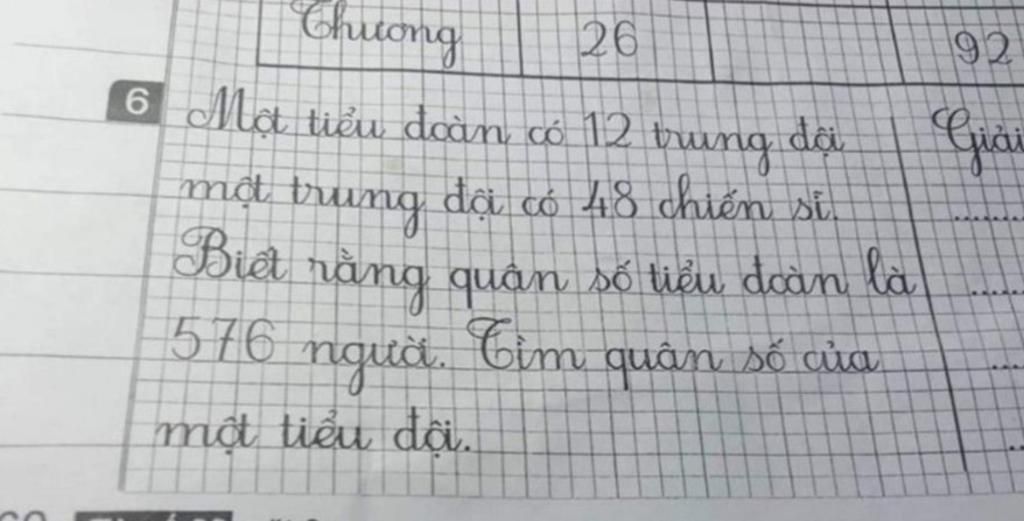 Thương 26 92
6 Một tiểu đoàn có 12 trung đội Giải
một trung đội có 48 chiến sĩ.
Biết rằng quân số tiểu đoàn là
576 người. Tìm quân số của
một tiểu đội.